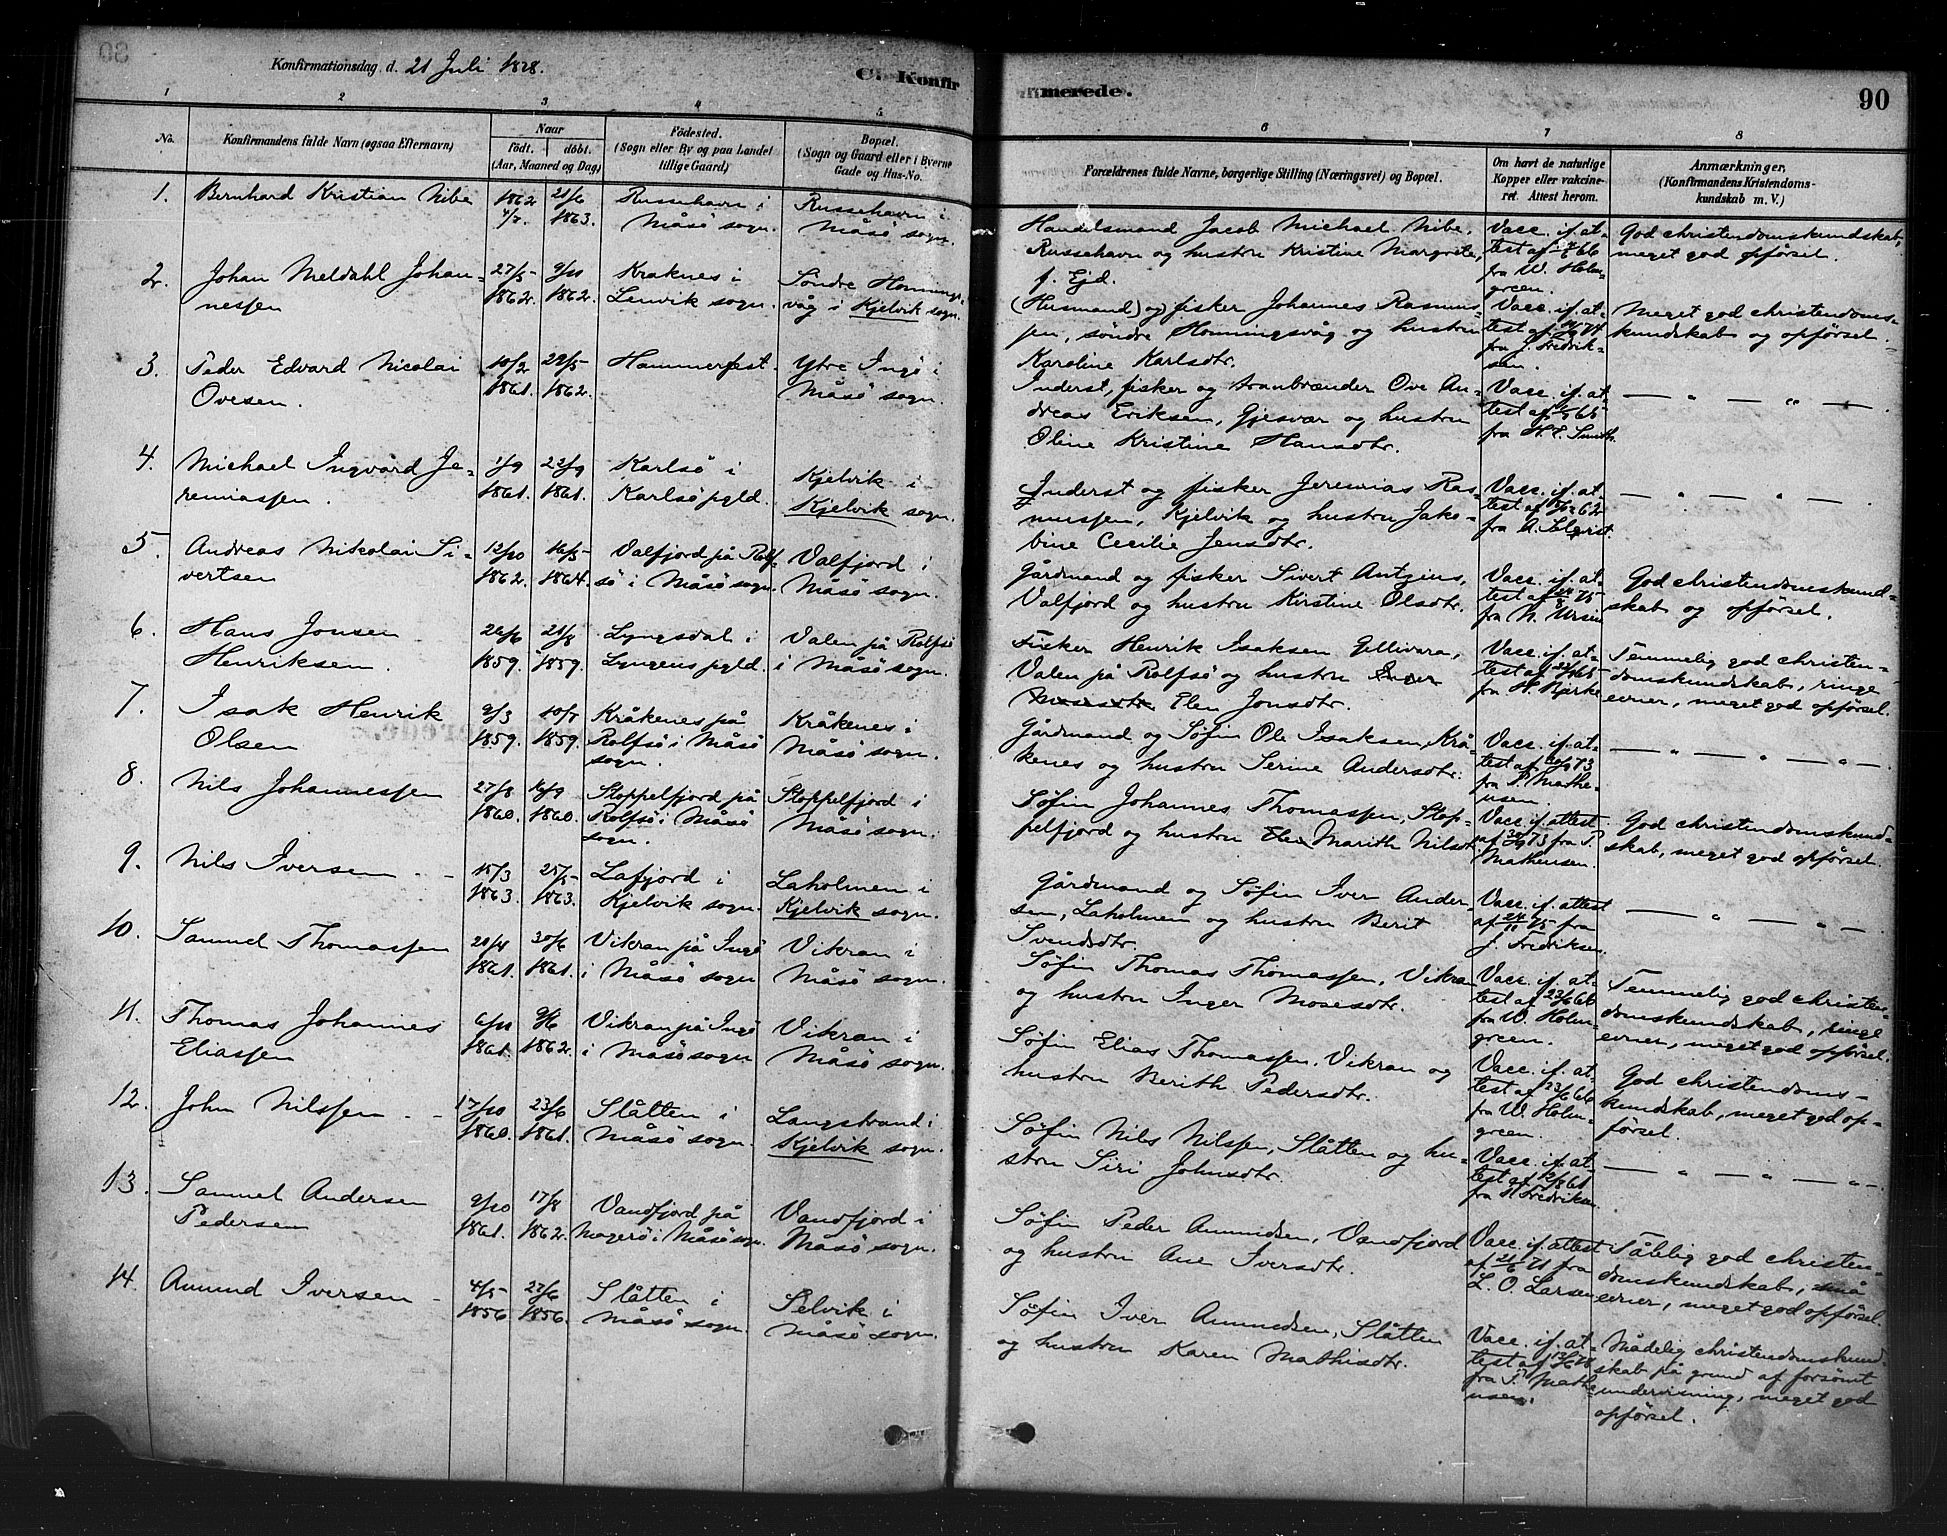 Konfirmationsdag d. 21 Juli 1878.
C. Konfirmerede.
90
1 2 3 4 5 6 7 8
No.
Konfirmandens fulde Navn (ogsaa Efternavn)
Naar
födt. döbt.
(Aar, Maaned og Dag)
Födested.
(Sogn eller By og paa Landet
tillige Gaard)
Bopæl.
(Sogn og Gaard eller i Byerne
Gade og Hus-No.
Forældrenes fulde Navne, borgerlige Stilling (Næringsvei) og Bopæl.
Om havt de naturlige
Kopper eller vakcine-
ret. Attest herom.
Anmærkninger,
(Konfirmandens Kristendoms-
kundskab m. V.)
1. Bernhard Kristian Nibe
1862 4/7. 21/6 1863.
Russehavn i
Måsö sogn.
Russehavn i
Måsö sogn.
Handelsmand Jacob Michael Nibe,
Russehavn og hustru Kristine Margrete,
f. Ejd.
Vacc. if. at-
test af 66
fra W. Holm-
green.
God christendomskundskab,
meget god opförsel.
2. Johan Meldahl Johan-
nessen
27/5 1862. 9/10 1862.
Kraknes i
Lenvik sogn.
Söndre Honnings-
våg i Kjelvik sogn.
(Husmand) og fisker Johannes Rasmus-
sen, söndre Honningsvåg og hustru
Karoline Karlsdtr.
Vacc. if. at-
test af 74
fra J. Fredrik-
sen.
Meget god christendoms-
kundskab og opförsel.
3. Peder Edvard Nicolai
Ovesen.
10/2 1861. 29/5 1862.
Hammerfest.
Ytre Ingö i
Måsö sogn.
Inderst, fisker og tranbrænder Ove An-
dreas Eriksen, Gjesvær og hustru
Oline Kristine Hansdtr.
Vacc. if. at-
test af 65
fra H. E. Smith.
— „ — „ —.
4. Michael Ingvard Je-
remiassen.
1/9 1861. 22/9 1861.
Karlsö i
Karlsö pgld.
Kjelvik i
Kjelvik sogn.
Inderst og fisker Jeremias Ras-
mussen, Kjelvik og hustru Jako-
bine Cecilie Jensdtr.
Vacc. if. at-
test af 62
fra A.
— „ — „ —.
5. Andreas Nikolai Si-
vertsen
12/10 1862. 16/5 1864.
Valfjord på Rolf-
sö i Måsö sogn.
Valfjord i
Måsö sogn.
Gårdmand og fisker Sivert Antzius,
Valfjord og hustru Kirstine Olsdtr.
Vacc. if. at-
test af 75
fra N. Ursin
God christendomskund-
skab og opförsel.
6. Hans Jonsen
Henriksen.
26/6 1859. 21/8 1859.
Lyngsdal i
Lyngens pgld.
Valen på Rolfsö
i Måsö sogn.
Fisker Henrik Isaksen Gellivara,
Valen på Rolfsö og hustru Inger
Elen Jonsdtr.
Vacc. if. at-
test af 65
fra H. Bjerke
Temmelig god christen-
domskundskab, ringe
evner, meget god opförsel.
7. Isak Henrik
Olsen
9/3 1859. 10/7 1859.
Kråkenes på
Rolfsö i Måsö
sogn.
Kråkenes i
Måsö sogn.
Gårdmand og Söfin Ole Isaksen, Krå-
kenes og hustru Serine Andersdtr.
Vacc. if. at-
test af 20/9 73
fra P. Mathe-
usen.
— „ — „ — „ —.
8. Nils Johannessen
27/8 1860. 16/9 1860.
Stoppelfjord på
Rolfsö i Måsö
sogn.
Stoppelfjord i
Måsö sogn.
Söfin Johannes Thomassen, Stop-
pelfjord og hustru Elen Marith Nilsdt.
Vacc. if. attest
af 20/9 73 fra P.
Matheusen.
God christendomskund-
skab, meget god opförsel.
9. Nils Iversen - -
15/3 1863. 25/5 1863.
Lafjord i
Kjelvik sogn.
Laholmen i
Kjelvik sogn.
Gårdmand og Söfin Iver Ander-
sen, Laholmen og hustru Berit
Svendsdtr.
Vacc. if. attest
af 24/11 75 fra
J. Fredriksen.
— „ — „ —.
10. Samuel Thomassen
20/4 1861. 30/6 1861.
Vikran på Ingö
i Måsö sogn
Vikran i
Måsö sogn.
Söfin Thomas Thomassen, Vikran
og hustru Inger Mosesdtr.
Vacc. if. at-
test af 23/6 66
fra W. Holm-
green.
Temmelig god christen-
domskundskab, ringe
evner, meget god opförsel.
11. Thomas Johannes
Eliassen
6/10 1861. 9/6 1862.
Vikran på Ingö
i Måsö sogn
Vikran i
Måsö sogn.
Söfin Elias Thomassen, Vikran og
hustru Berith Pedersdtr.
Vacc. if. at-
test af 23/6 66
fra W. Holm-
green.
God christendoms-
kundskab, meget god op-
försel.
12. John Nilssen - -
17/10 1860. 23/6 1861.
Slåtten i
Måsö sogn.
Langstrand i
Kjelvik sogn.
Söfin Nils Nilssen, Slåtten og hu-
stru Siri Johnsdtr.
Vacc. if. at-
test af 61
fra Fredriksen
— „ — „ — „ —.
13. Samuel Andersen
Pedersen
9/10 1861. 17/8 1862.
Vandfjord på
Magerö i Måsö sogn.
Vandfjord i
Måsö sogn.
Söfin Peder Amundsen, Vandfjord
og hustru Ane Iversdtr.
Vacc. if. attest
af 21/6 71 fra
L. O. Larsen
Tålelig god christen-
domskundskab, små
evner, meget god opförsel.
14. Amund Iversen -
4/5 1856 27/6 1856.
Slåtten i
Måsö sogn.
Selvik i
Måsö sogn.
Söfin Iver Amundsen, Slåtten
og hustru Karen Mathisdtr.
Vacc. if. at-
test af 13/6 78
fra P. Mathe-
usen.
Mådelig christendomskund-
skab på grund af forsömt
undervisning, meget god
opförsel.